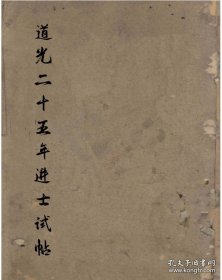 道光二十五年进士试帖
孔夫子旧书网